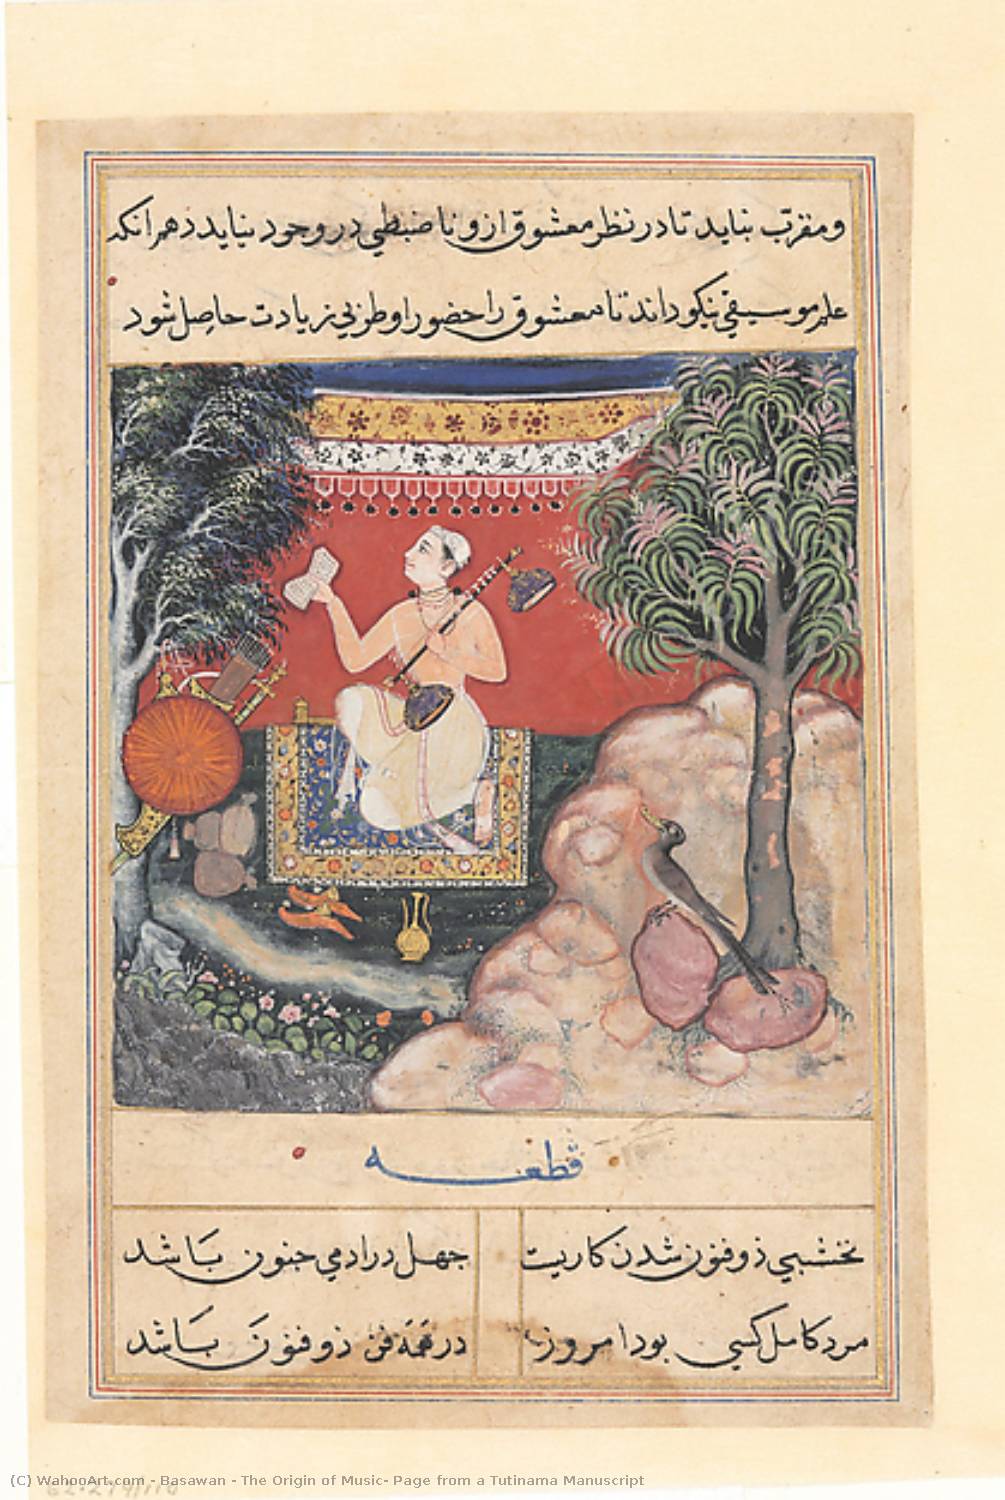 ومقرّب نیاید تا در نظر معشوق ازو ناضبطي در وجود نیاید دهم انکه
علم موسیقي نیکو داند تا معشوق را حضور او طربي زیادت حاصل شود
قطعه
نخشبي ذوفنون شدن کاریت جهل در ادمي جنون باشد
مرد کامل کسي بود امروز در همه فن ذوفنون باشد
(C) WahooArt.com - Basawan - The Origin of Music- Page from a Tutinama Manuscript